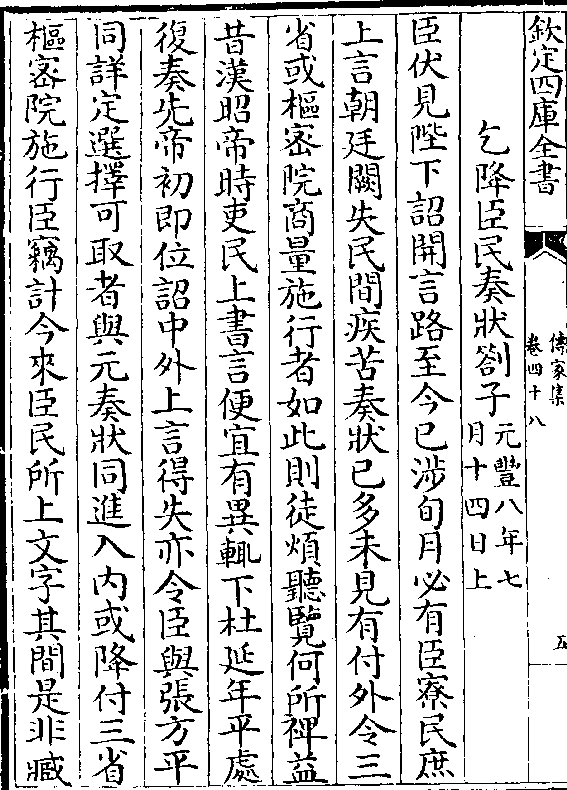 欽定四庫全書
傳家集
卷四十八
五
乞降臣民奏狀劄子元豐八年七
月十四日上
臣伏見陛下詔開言路至今已涉旬月必有臣寮民庶
上言朝廷闕失民間疾苦奏狀已多未見有付外令三
省或樞宻院商量施行者如此則徒煩聽覽何所裨益
昔漢昭帝時吏民上書言便宜有異輒下杜延年平處
復奏先帝初即位詔中外上言得失亦令臣與張方平
同詳定選擇可取者與元奏狀同進入内或降付三省
樞宻院施行臣竊計今來臣民所上文字其間是非臧